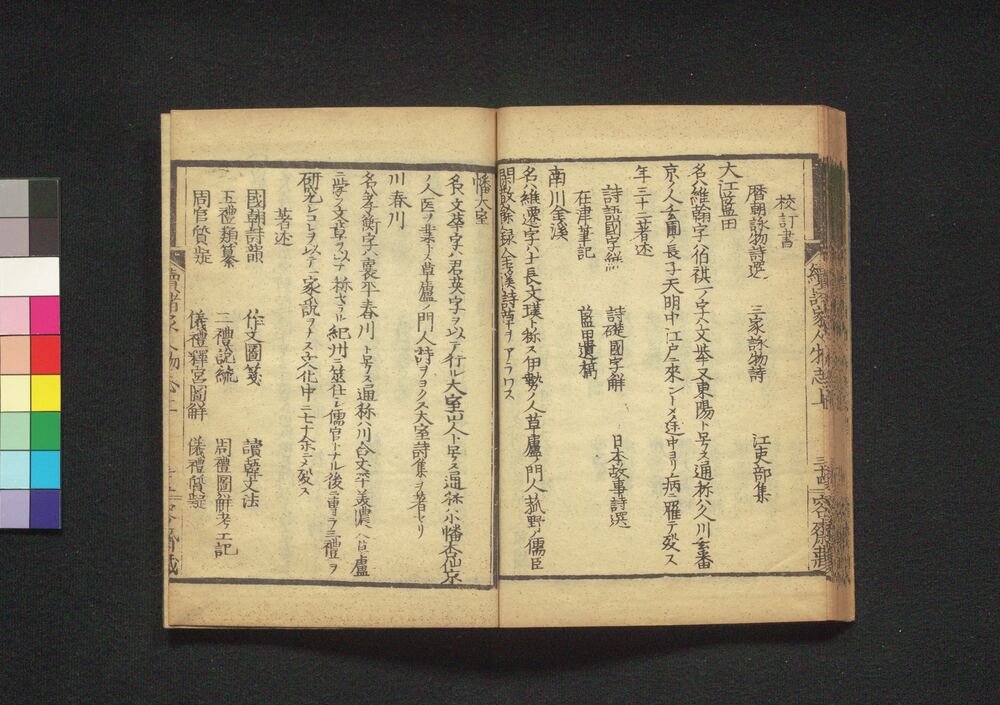 校訂書
暦朝詠物詩選 三家詠物詩 江吏部集
大江藍田
名ハ維翰字ハ伯祺一字ハ文峯又東陽ト号ス通称ハ久川玄蕃
京ノ人玄圃ノ長子天明中江戸ニ來ン一メ途中ヨリ病ニ罹テ殁ス
年三十二著述
詩語國字解 詩礎國字解 日本故事詩選
在津筆記 藍田遺稿
南川金溪
名ハ維遷字ハ士長文璞ト称ス伊勢ノ人草廬ノ門人菰野ノ儒臣
閑散餘録金溪詩草ヲアラワス
續諸家人物志上 三十四 容齋藏
幡大室
名ハ文華字ハ君英字ヲ以テ行ル大室山人ト号ス通称ハ小幡杏仙京
ノ人医ヲ業トス草廬ノ門人詩ヲヨクス大室詩集ヲ著セリ
川春川
名ハ孝衡字ハ襄平春川ト号ス通称ハ川合丈平美濃ノ人草廬
ニ学ヒ文章ヲ以テ称セラル紀州ニ筮仕シ儒官トナル後ニ専ラ三禮ヲ
研究シコレヲ以テ一家ノ説ヲナス文化中ニ七十余ニメ殁ス
著述
國朝詩韻 作文圖箋 讀韓文法
五禮類纂 三禮説統 周禮圖解考工記
周官質疑 儀禮釋宮圖解 儀禮質疑